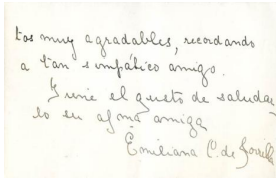 tos muy agradables, recordando
a tan simpático amigo.
Tiene el gusto de saludar
lo su afma amiga
Emiliana C. de Zorrilla